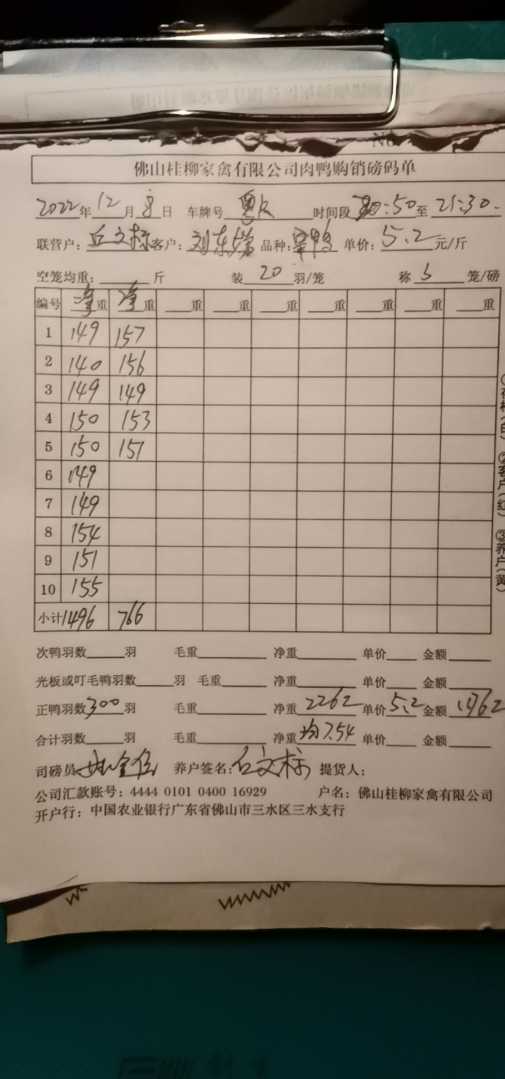 佛山桂柳家禽有限公司肉鸭购销磅码单
2022年12月8日 车牌号 粤K 时间段 :50至21:30.
联营户: 丘文标 客户: 刘东 品种: 鸭 单价: 5.2元/斤
空笼均重: 斤 装20羽/笼 称5笼/磅
编号 净重 净重 重 重 重 重 重 重 重
1 149 157
2 140 156
3 149 149
4 150 153
5 150 151
6 149
7 149
8 154
9 151
10 155
小计 1496 766
次鸭羽数 羽 毛重 净重 单价 金额
光板或叮毛鸭羽数 羽 毛重 净重 单价 金额
正鸭羽数300羽 毛重 净重2262 单价5.2 金额 11762
合计羽数 羽 毛重 净重均7.54 单价 金额
司磅员: 养户签名: 丘文标 提货人:
公司汇款账号: 4444 0101 0400 16929 户名: 佛山桂柳家禽有限公司
开户行: 中国农业银行广东省佛山市三水区三水支行
②客户(红)
③养户(黄